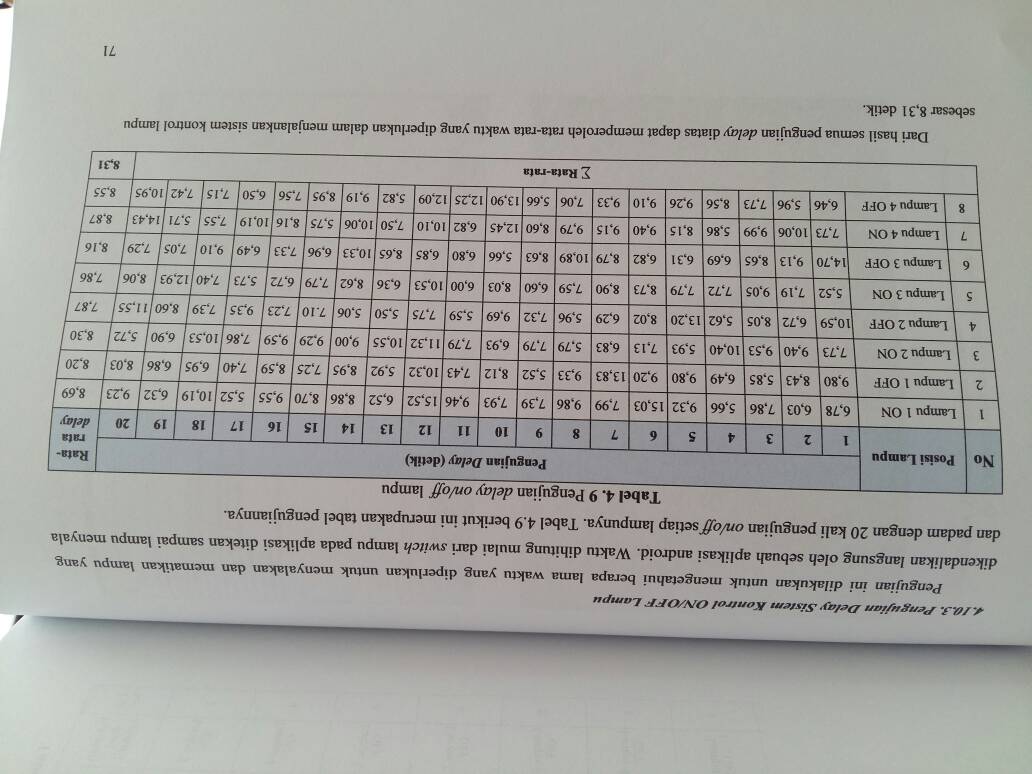 4.10.3. Pengujian Delay Sistem Kontrol ON/OFF Lampu
Pengujian ini dilakukan untuk mengetahui berapa lama waktu yang diperlukan untuk menyalakan dan mematikan lampu yang
dikendalikan langsung oleh sebuah aplikasi android. Waktu dihitung mulai dari switch lampu pada aplikasi ditekan sampai lampu menyala
dan padam dengan 20 kali pengujian on/off setiap lampunya. Tabel 4.9 berikut ini merupakan tabel pengujiannya.
Tabel 4. 9 Pengujian delay on/off lampu
No Posisi Lampu Pengujian Delay (detik) Rata-rata delay
1 2 3 4 5 6 7 8 9 10 11 12 13 14 15 16 17 18 19 20
1 Lampu 1 ON 6,78 6,03 7,86 5,66 9,32 15,03 7,99 9,86 7,39 7,93 9,46 15,52 6,52 8,86 8,70 9,55 5,52 10,19 6,32 9,23 8,69
2 Lampu 1 OFF 9,80 8,43 5,85 6,49 9,80 9,20 13,83 9,33 5,52 8,12 7,43 10,32 5,92 8,95 7,25 8,59 7,40 6,95 6,86 8,03 8,20
3 Lampu 2 ON 7,73 9,40 9,53 10,40 5,93 7,13 6,83 5,79 7,79 6,93 7,79 11,32 10,55 9,00 9,29 9,59 7,86 10,53 6,90 5,72 8,30
4 Lampu 2 OFF 10,59 6,72 8,05 5,62 13,20 8,02 6,29 5,96 7,32 9,69 5,59 7,75 5,50 5,06 7.10 7,23 9,35 7,39 8,60 11,55 7,87
5 Lampu 3 ON 5,52 7,19 9,05 7,72 7,79 8,73 8,90 7,59 6,60 8,03 6,00 10,53 6,36 8,62 7,79 6,72 5,73 7,40 12,93 8,06 7,86
6 Lampu 3 OFF 14,70 9,13 8,65 6,69 6,31 6,82 8,79 10,89 8,63 5,66 6,80 6,85 8,65 10,33 6,96 7,33 6,49 9,10 7,05 7,29 8,16
7 Lampu 4 ON 7,73 10,06 9,99 5,86 8,15 9,40 9,15 9,79 8,60 12,45 6,82 10,10 7,50 10,06 5,75 8,16 10,19 7,55 5,71 14,43 8,87
8 Lampu 4 OFF 6,46 5,96 7,73 8,56 9,26 9,10 9,33 7,06 5,66 13,90 12,25 12,09 5,82 9,19 8,95 7,56 6,50 7,15 7,42 10,95 8,55
∑ Rata-rata 8,31
Dari hasil semua pengujian delay diatas dapat memperoleh rata-rata waktu yang diperlukan dalam menjalankan sistem kontrol lampu
sebesar 8,31 detik.
71